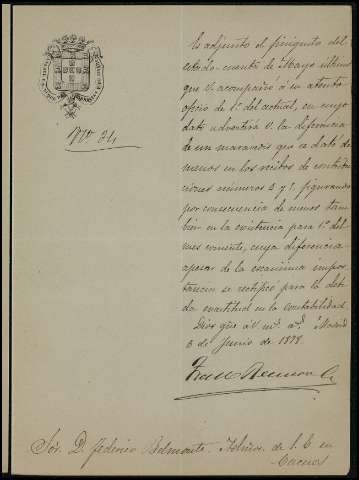 Nº 84
Es adjunto el finiquito del
estado-cuenta de Mayo último
que V. acompañó á su atento
oficio de 1º del actual, en cuyo
dato advertirá V. la diferencia
de un maravedis que se dató de
menos en los recibos de contribu
ciones números 2 y 1. figurando
por consecuencia de menos tam
bien en la existencia para 1º del
mes corriente, cuya diferencia
apesar de la escasísima impor
tancia se rectificó para la debi
da exactitud en la contabilidad.
Dios gue á V. ms. as. Madrid
6 de Junio de 1878.
Sor. D. Federico Belmonte. Admor. de S. E. en
Cáceres